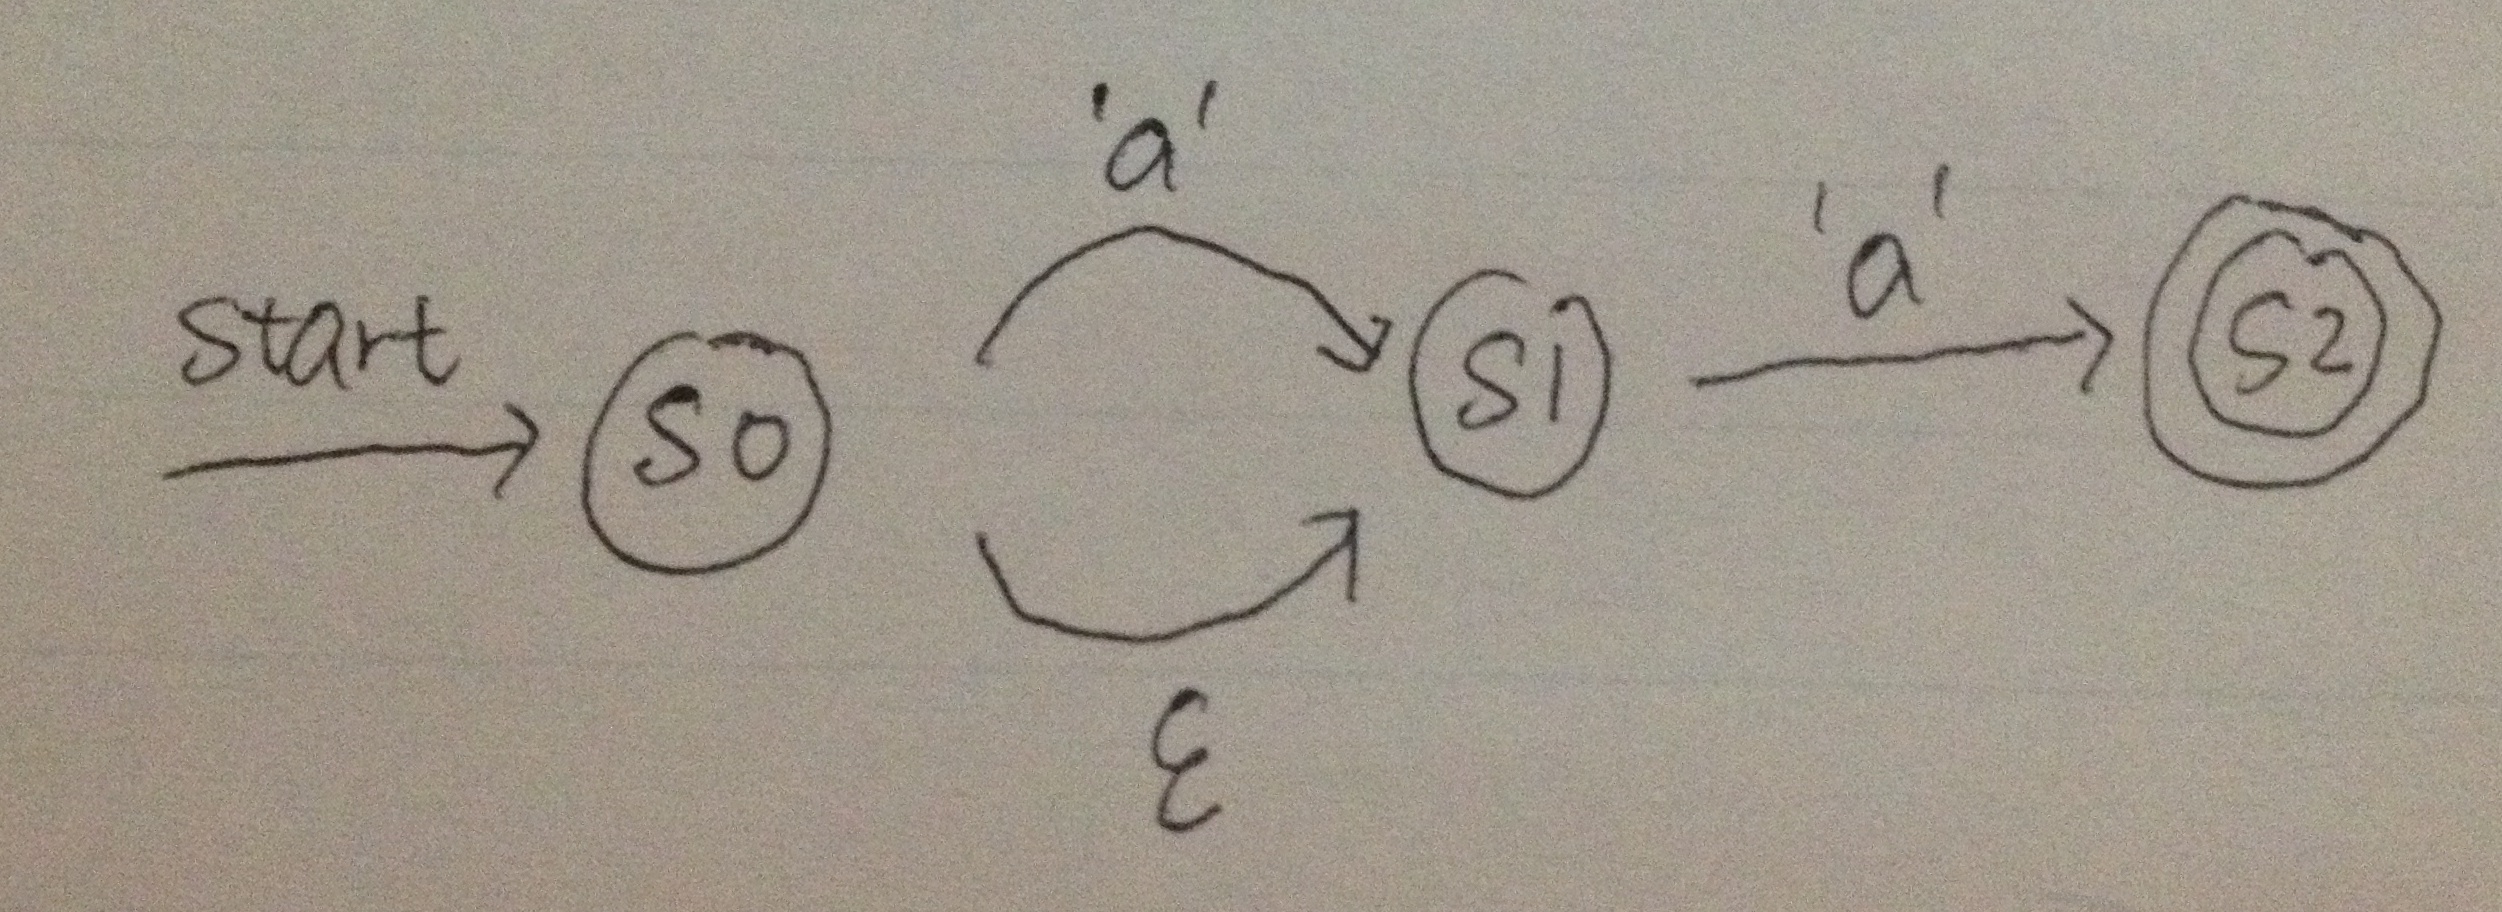 'a'
'a'
start
S0
S1
S2
ε